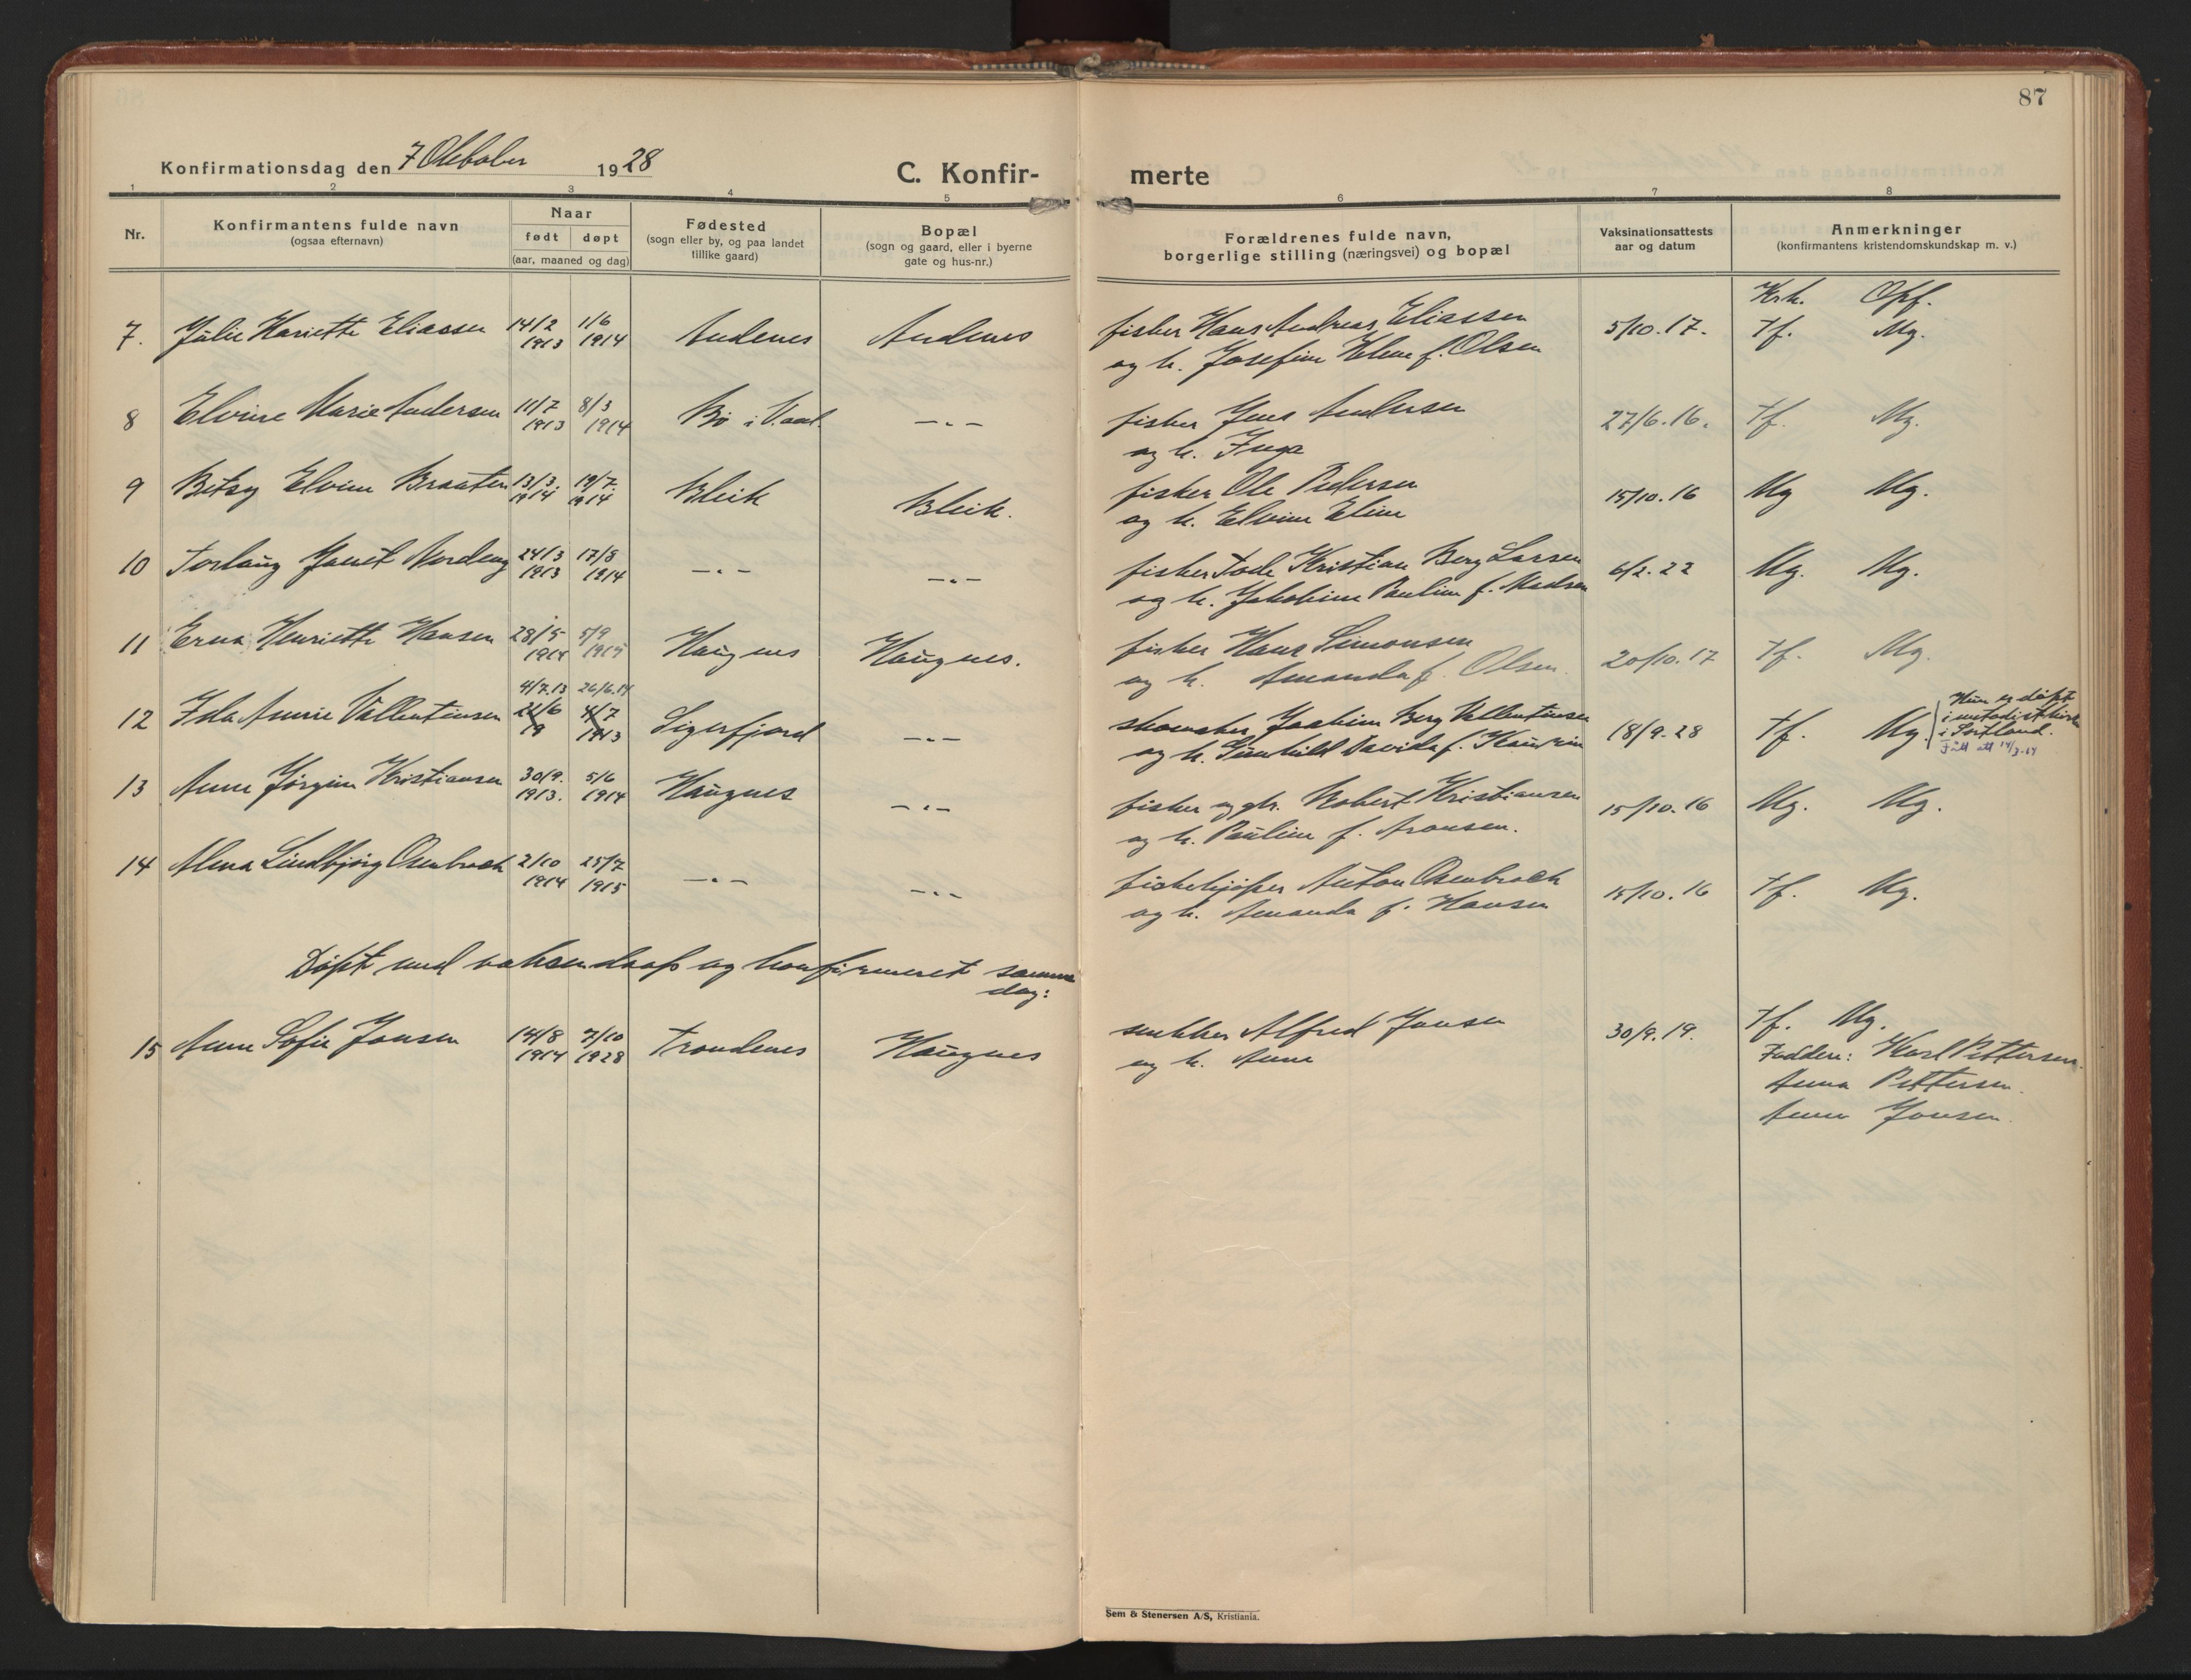 87
Konfirmationsdag den 7 Oktober 1928
C. Konfir- merte
1 2 3 4 5 6 7 8
Nr.
Konfirmantens fulde navn
(ogsaa efternavn)
Naar
født døpt
(aar, maaned og dag)
Fødested
(sogn eller by, og paa landet
tillike gaard)
Bopæl
(sogn og gaard, eller i byerne
gate og hus-nr.)
Forældrenes fulde navn,
borgerlige stilling (næringsvei) og bopæl
Vaksinationsattests
aar og datum
Anmerkninger
(konfirmantens kristendomskundskap m. v.)
Krk. Opf.
7. Julie Hariette Eliassen 14/2 1/6 Andenes Andenes fisker Hans Andreas Eliassen 5/10.17. Tf. Mg.
1913 1914 og h. Josefine Helene f. Olsen
8 Elvine Marie Andersen 11/7 8/3 Bø i V.aal. —"— fisker Jens Andersen 27/6.16. Tf. Mg.
1913 1914 og h. Inga
9 Betsy Elvine Braaten 13/3. 19/7. Bleik Bleik. fisker Ole Pedersen 15/10.16 Mg Mg.
1914 1914 og h. Elvine Eline
10 Torlaug Jonet Nordeng 24/3 17/8 —"— —"— fisker Tode Kristian Berg Larsen 6/2.22 Mg. Mg.
1913 1914 og h. Jakobine Pauline f. Madsen
11 Erna Henriette Hansen 28/5 5/9 Haugnes Haugnes. fisker Hans Simonsen 20/10.17 Tf. Mg.
1914 1915 og h. Amanda f. Olsen.
4/7.13 26/6.14
12 Ida Annie Vallentinsen 26/6 4/7 Sigerfjord —"— skomaker Joakim Berg Vallentinsen 18/9.28 Tf. Mg.
19 1913 og h. Gunhild Davida f. Kaurin
Hun er døpt
i metodistkirke
i Sortland.
13 Anne Jørgine Kristiansen 30/9. 5/6 Haugnes —"— fisker og gbr. Robert Kristiansen 15/10.16 Mg. Mg.
1913. 1914 og h. Pauline f. Aronsen.
14 Alma Lindbjørg Osenbroch 2/10 25/7 —"— —"— fiskekjøper Anton Osenbroch 15/10.16 Tf. Mg.
1914 1915 og h. Amanda f. Hansen
Døpt med voksendaap og konfirmeret samme
dag:
15 Anne Sofie Jonsen 14/8 7/10 Trondenes Haugnes snekker Alfred Jonsen 30/9.19. Tf. Mg.
1914 1928 og h. Anne
Faddere: Karl Pettersen.
Anna Pettersen.
Anne Jonsen.
Sem & Stenersen A/S, Kristiania.